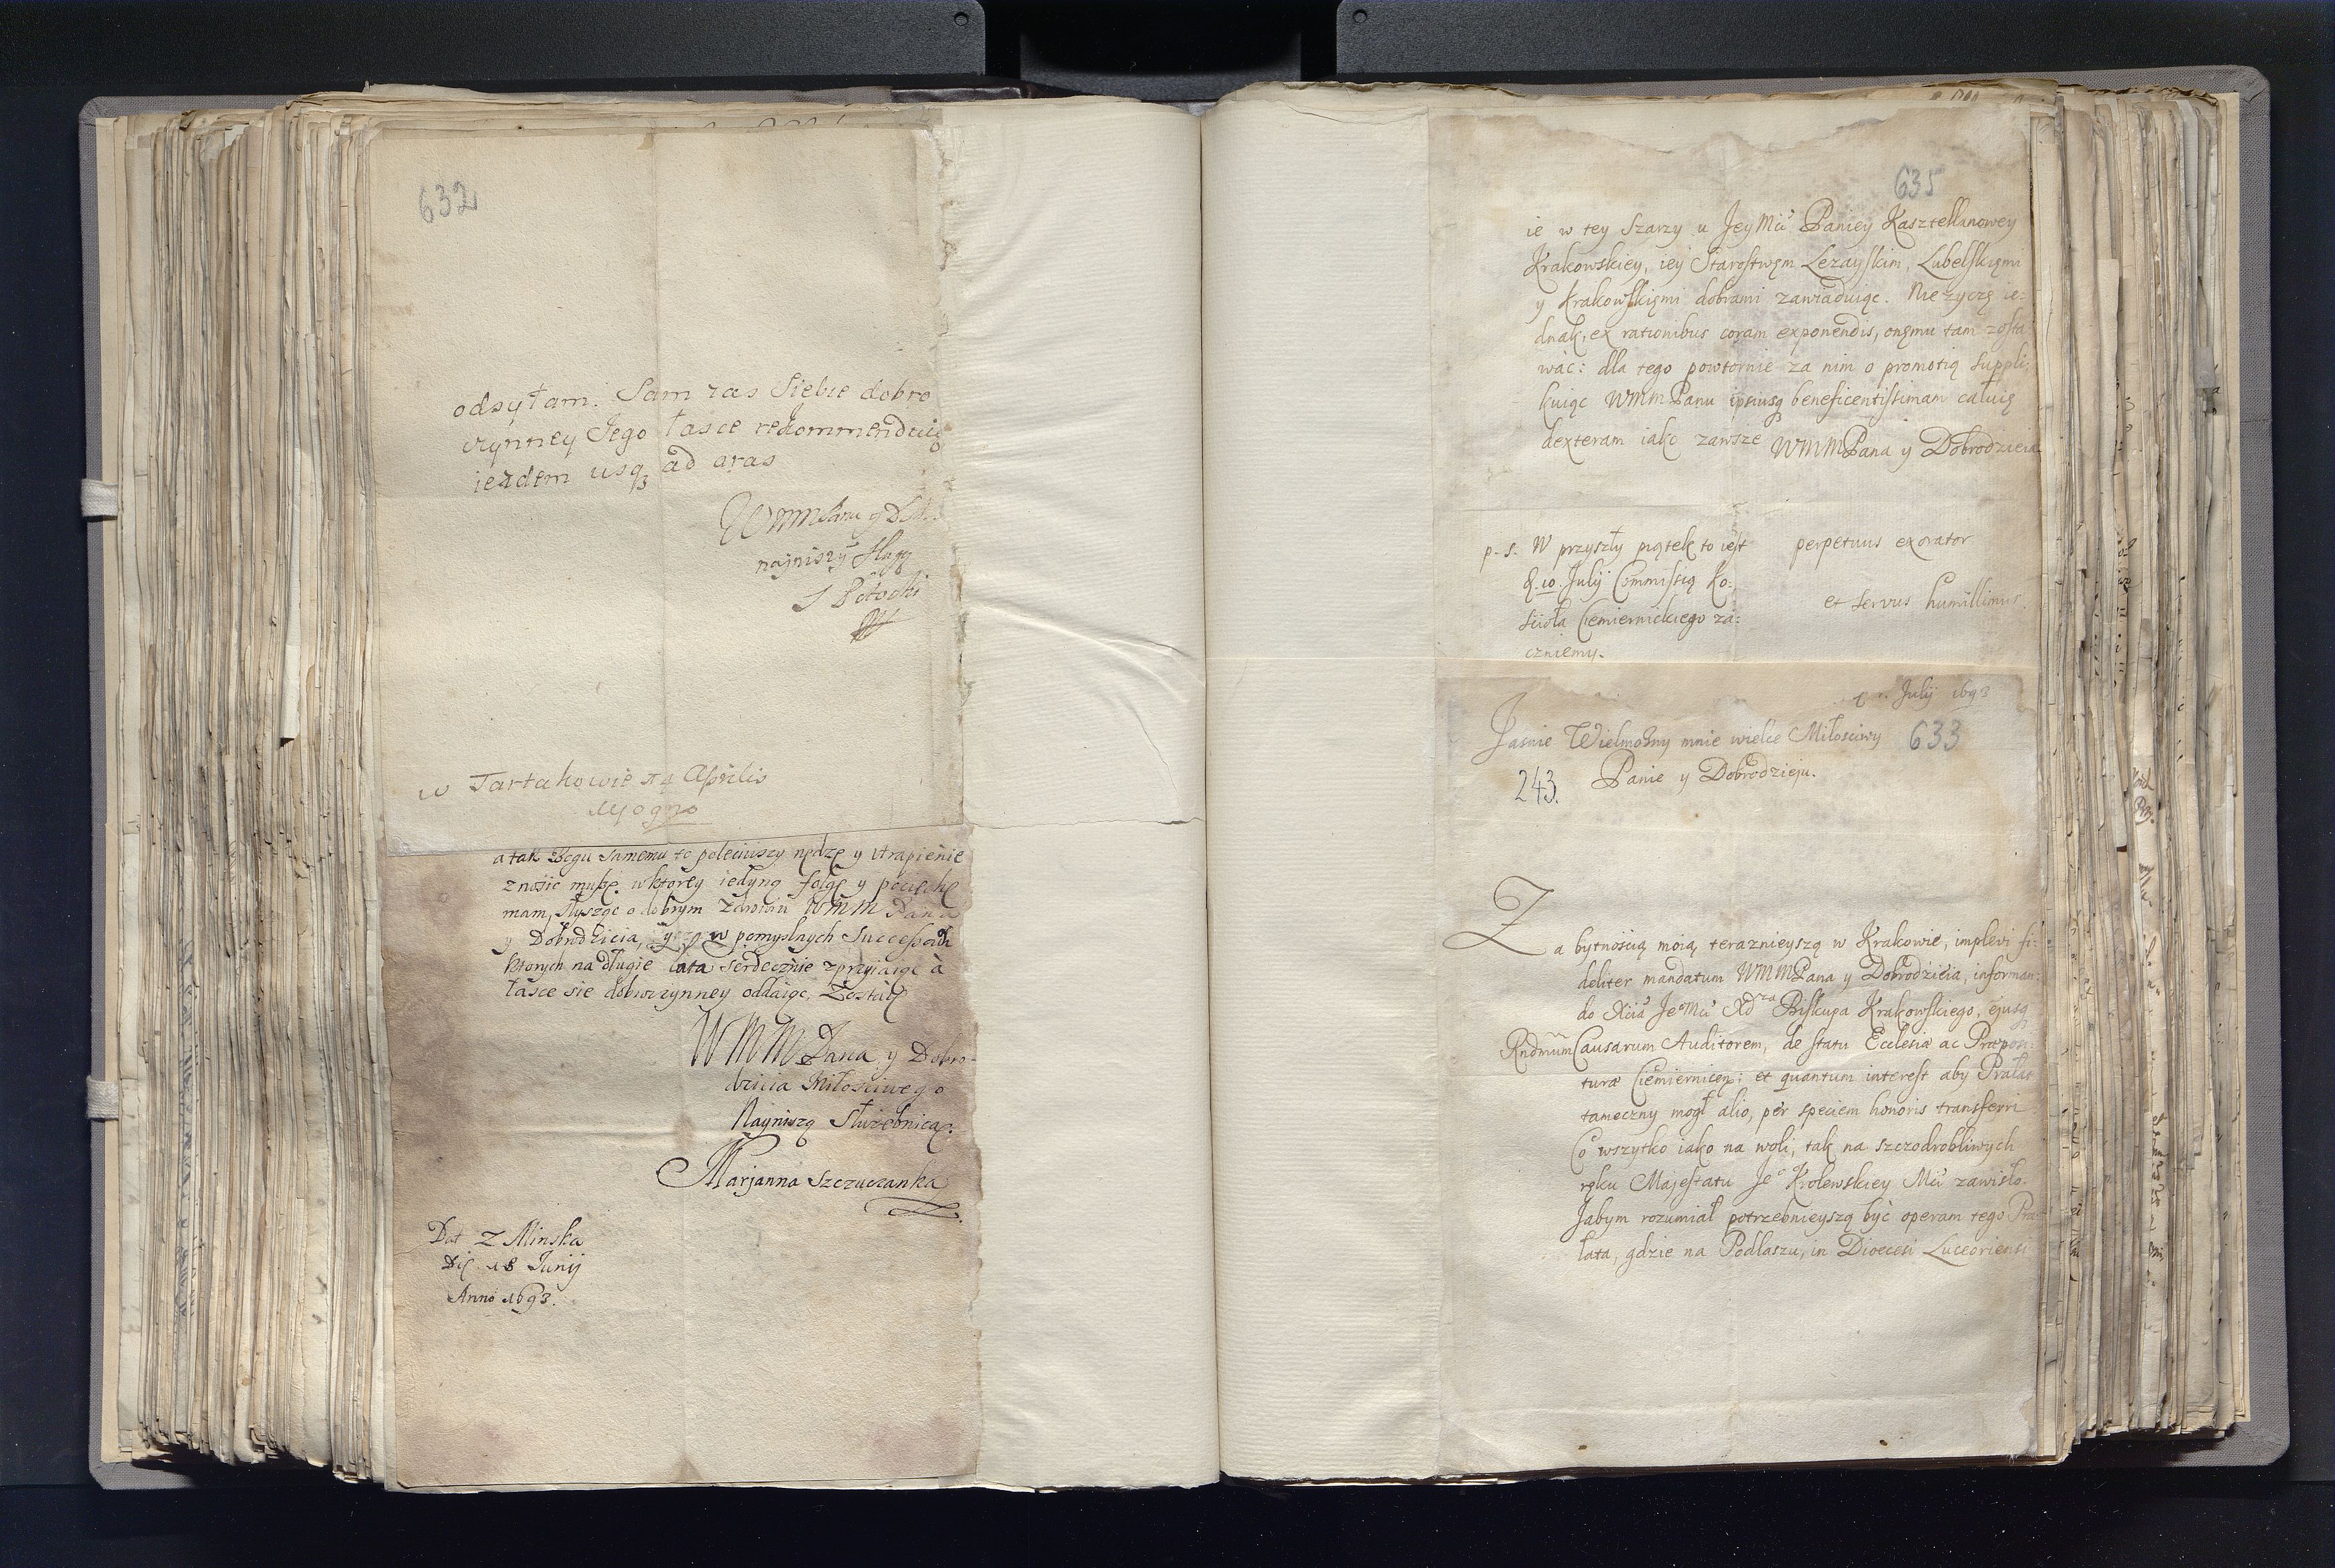 632
odsyłam. Sam zas Siebie dobro
czynney Jego łasce rekommenduię
iezdem usq3 ad aras
WMMPana y Dob
najniszy sługa
J Potocki
w Tartakowie 14 Aprilis
a tak Bogu samemu to poleciwszy nędzę y utrapienie
znosic muszę, w ktorey iedyną folgę y pociechę
mam, słysząc o dobrym zdrowiu WMM Pana
y Dobrodzieia, y w pomyslnych Successach
ktorych na długie lata serdecznie zprzyiaiąc à
łasce sie dobroczynney oddaiąc, Zostaię
WMM Pana y Dobro-
dzieia Miłosciwego
Nayniszą Służebnicą.
Marjanna Szczuczanka
Dat z Minska
Die 18 Junij
Anno 1693.
635
ie w tey Szarzy u Jey Mći Paniey Kasztellanowey
Krakowskiey, iey Starostwem Lezayskim, Lubelskiemi
y Krakowskiemi dobrami zawiaduiąc. Nie zyczę ie-
dnak, ex rationibus coram exponendis, onemu tam zosta
wać: dla tego powtornie za nim o promotią suppli-
kuiąc WMMPanu ipsiusq3 beneficentissimam całuię
dexteram iako zawsze WMMPana y Dobrodzieia
perpetuus exorator
et servus humillimus.
p. s. W przyszły piątek to iest
d. 10. Julij Commissią Ko-
scioła Ciemiernickiego za-
czniemy.
Julij 1693
Jasnie Wielmożny mnie wielce Miłosciwy
633
243.
Panie y Dobrodzieju.
Za bytnoscią moią teraznieyszą w Krakowie, implevi fi-
deliter mandatum WMMPana y Dobrodzieia, informan-
do Xcia Je Mći Xdza Biskupa Krakowskiego, ejusq3
Rndmum Causarum Auditorem, de statu Ecclesiæ ac Præposi-
turæ Ciemiernicen: et quantum interest aby Prałat
tameczny mogł alio, per speciem honoris transferri
Co wszytko iako na woli, tak na szczodrobliwych
ręku Majestatu Je Krolewskiey Mći zawisło.
Jabym rozumiał potrzebnieyszą być operam tego Pra-
łata, gdzie na Podlaszu, in Dioecesi Luceoriensi